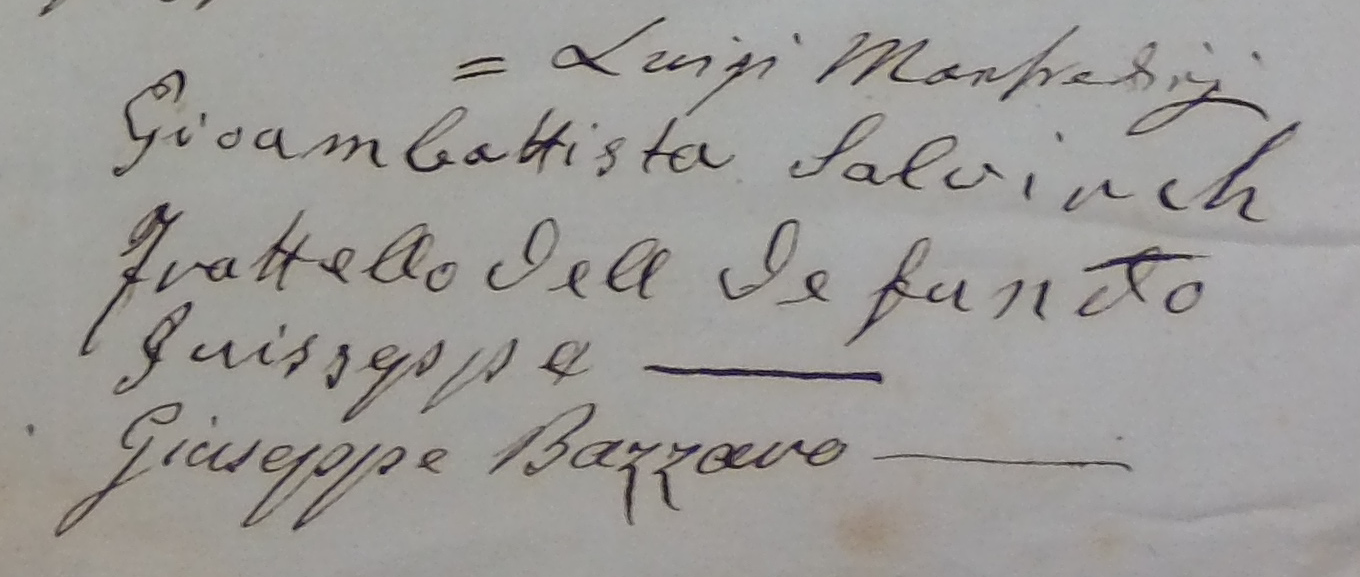 = Luigi Manfredinj
Gioambattista Salvinch
Frattello dell defuncto
Guisseppe
Giuseppe Bazzaro